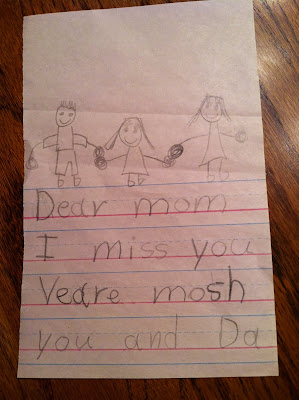 Dear mom
I miss you
Veare mosh
you and Da